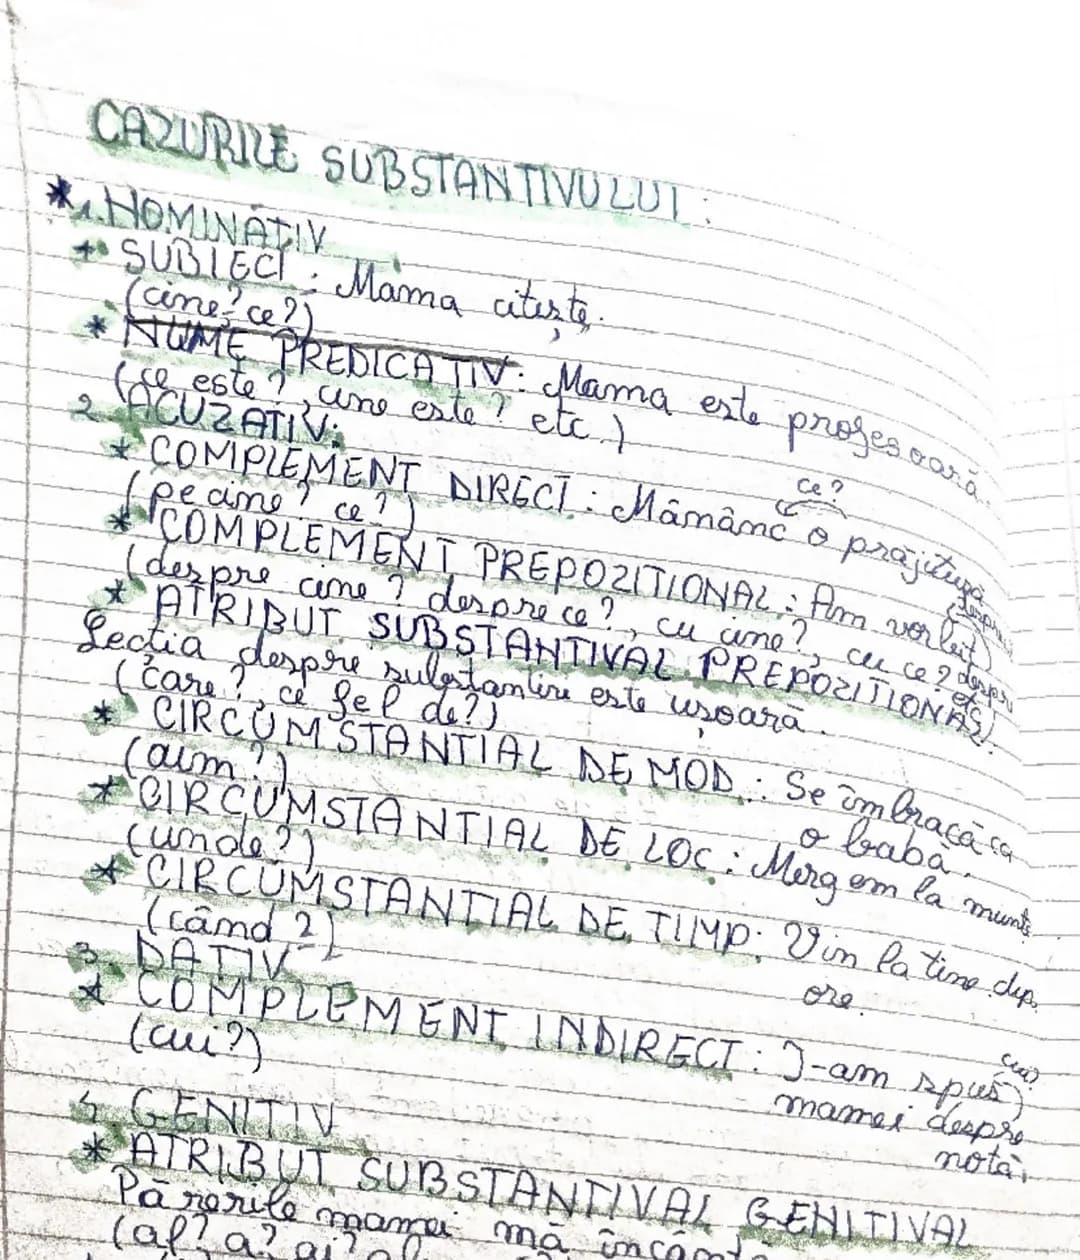 CAZURILE SUBSTANTIVULUI:
* 1. NOMINATIV
* SUBIECT: Mama citește.
(cine? ce?)
* NUME PREDICATIV: Mama este profesoară.
(ce este?, cine este? etc.)
2. ACUZATIV:
* COMPLEMENT DIRECT: Mănânc o prăjitură
ce?
(pe cine? ce?)
* COMPLEMENT PREPOZITIONAL: Am vorbit
(despre cine? despre ce?, cu cine?, cu ce? etc.)
* ATRIBUT SUBSTANTIVAL PREPOZITIONAL:
Lecția despre substantive este ușoară.
(care?, ce fel de?)
* CIRCUMSTANTIAL DE MOD: Se îmbracă ca
o babă.
(cum?)
* CIRCUMSTANTIAL DE LOC: Mergem la munte
(unde?)
* CIRCUMSTANTIAL DE TIMP: Vin la tine dup.
ore.
(când?)
3. DATIV
* COMPLEMENT INDIRECT: I-am spus
cui?
mamei despre
notă.
(cui?)
4. GENITIV
* ATRIBUT SUBSTANTIVAL GENITIVAL
Părerile mamei mă
(al? a? ai?